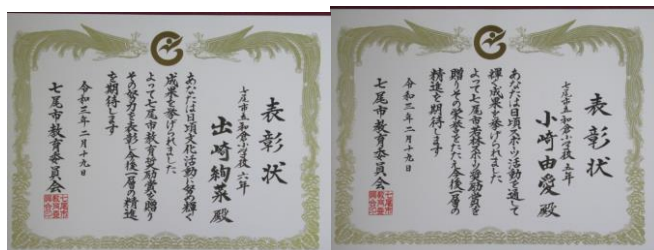 表彰状
七尾市立和倉小学校 六年
出崎絢菜 殿
あなたは日頃文化活動に努め輝く
成果を挙げられました
よって七尾市教育奨励賞を贈り
その努力を表彰し今後一層の精進
を期待します
令和三年二月十九日
七尾市教育委員会
表彰状
七尾市立和倉小学校 五年
小崎由愛 殿
あなたは日頃スポーツ活動を通して
輝く成果を挙げられました
よって七尾市若林スポーツ奨励賞を
贈りその栄誉をたたえ今後一層の
精進を期待します
令和三年二月十九日
七尾市教育委員会